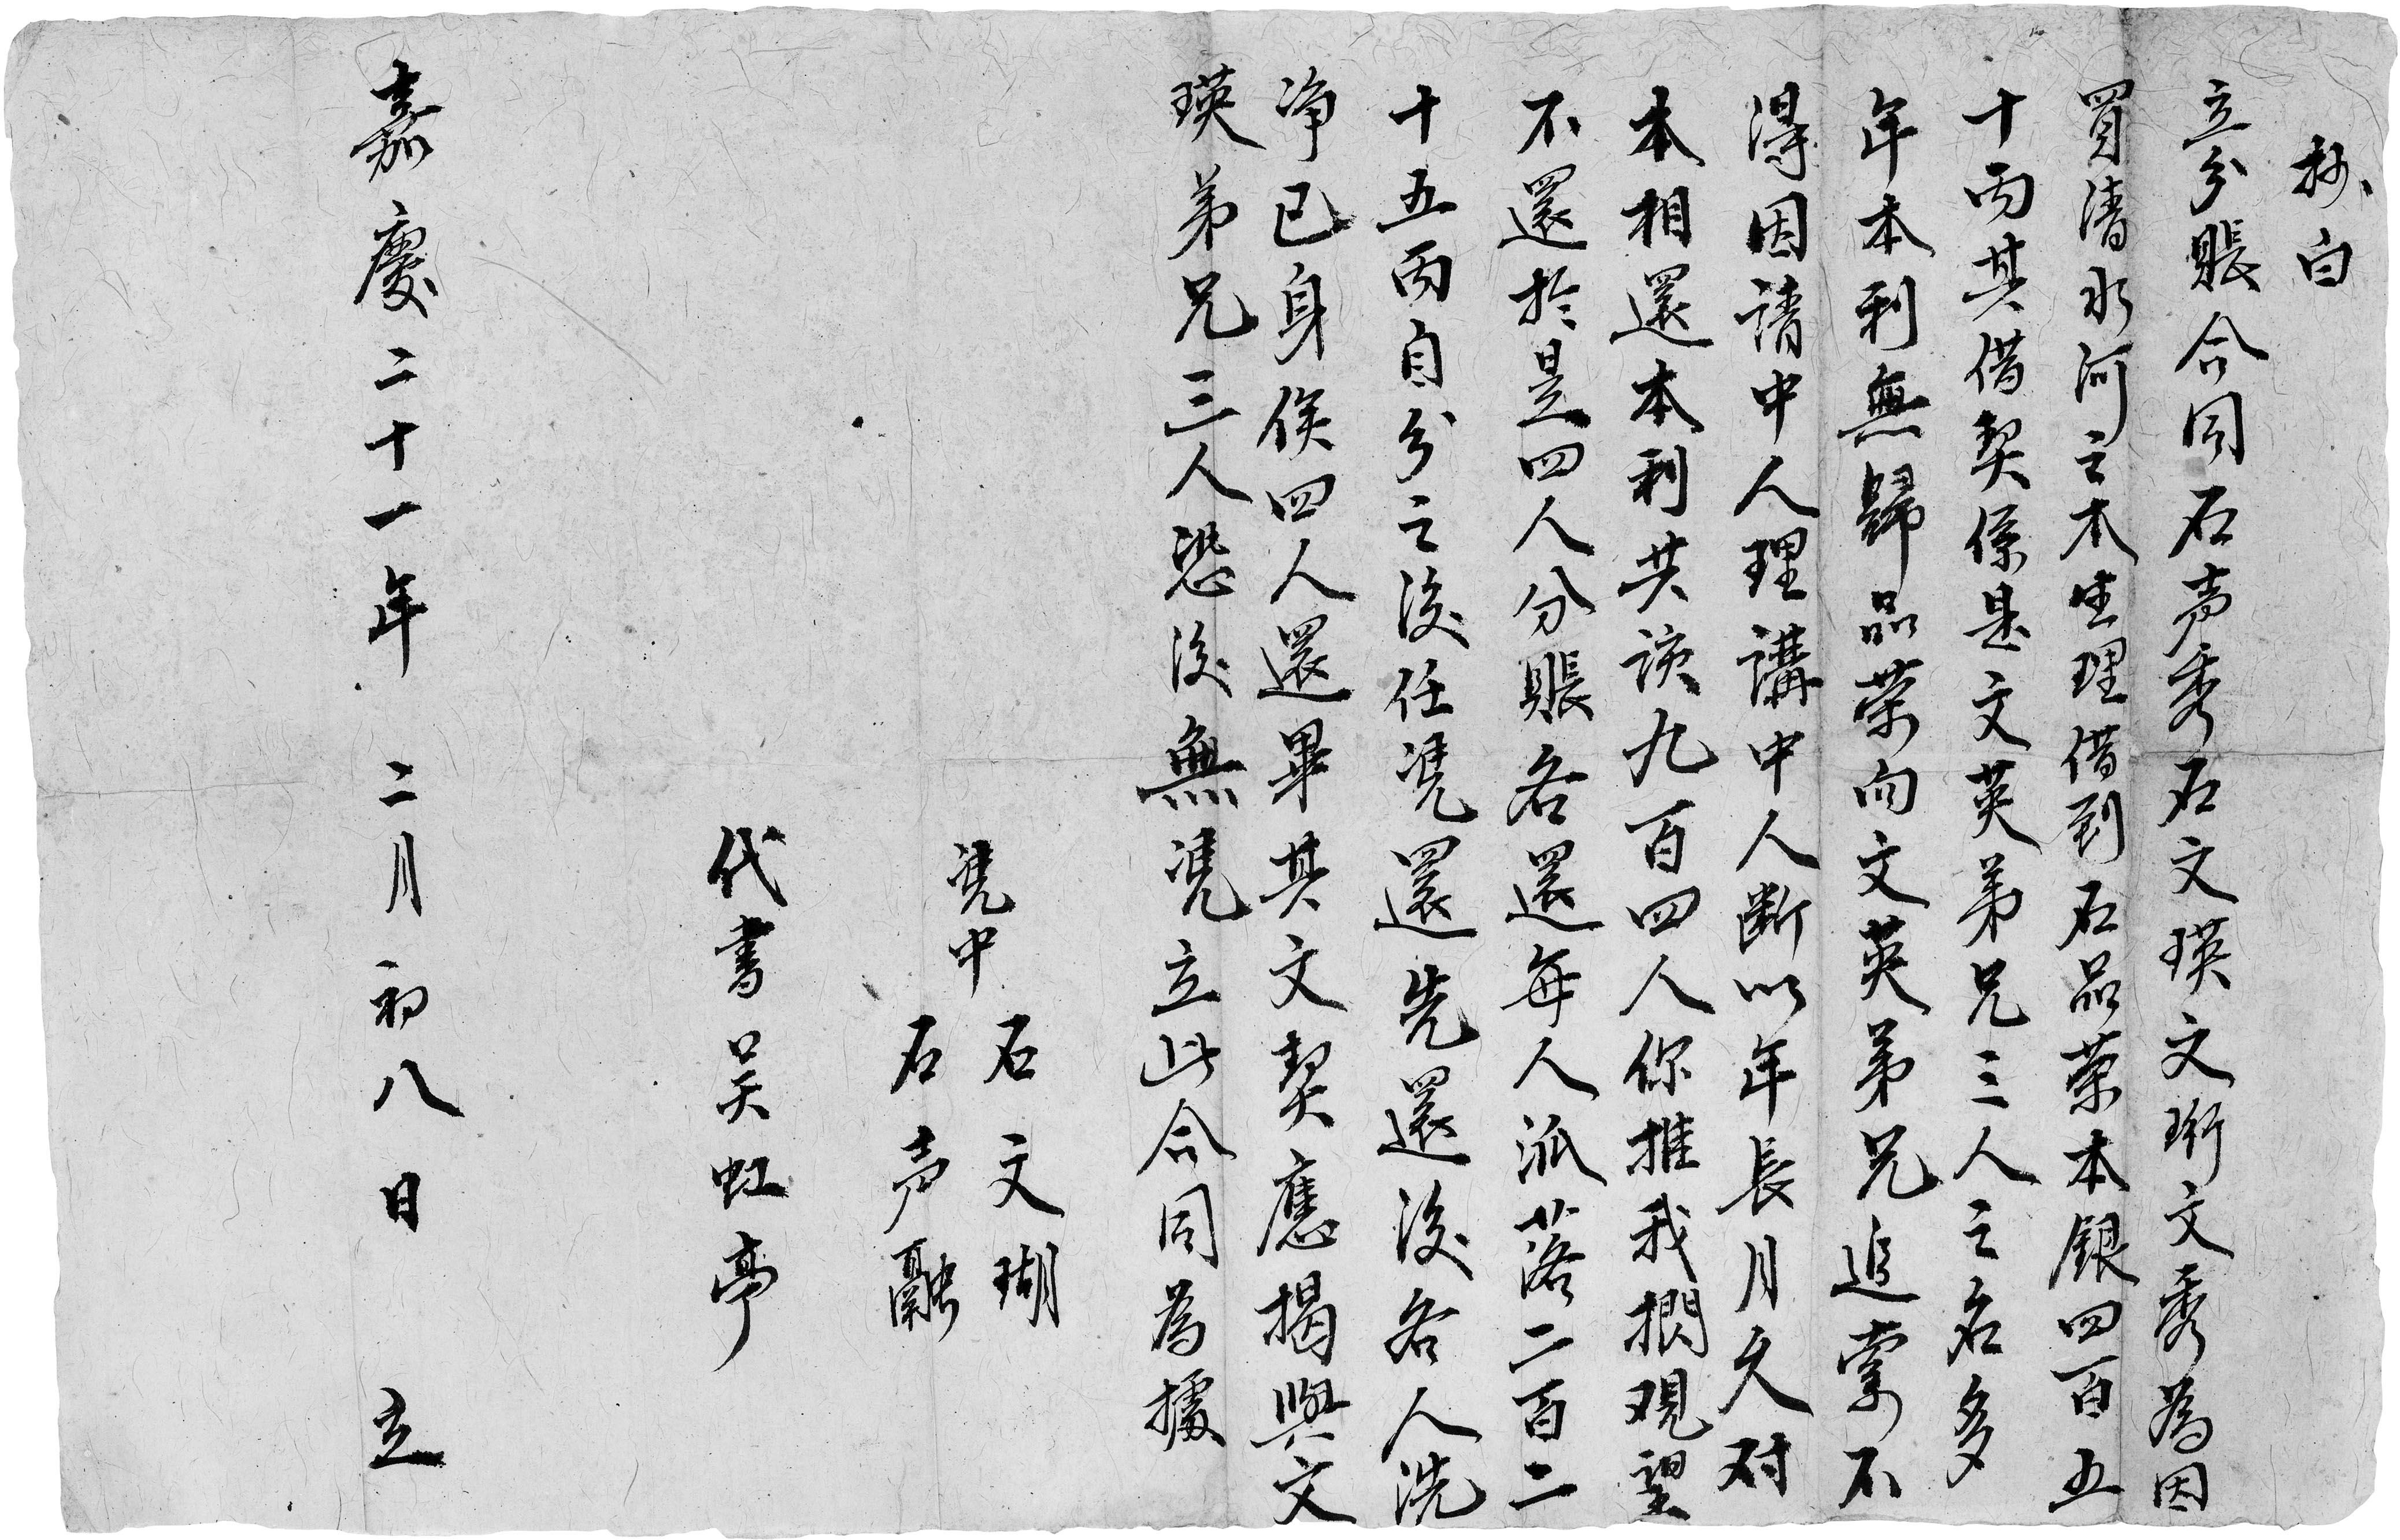 抄白
立分賬合同石声秀石文瑛文珩文秀為因
買清水河之木生理借到石品荣本銀四百五
十両其借契係是文英弟兄三人之名多
年本利無歸品荣向文英弟兄追索不
淂因請中人理講中人断以年長月久对
本相還本利共該九百四人你推我擱观望
不還於是四人分賬各還每人派落二百二
十五両自分之後任凴還先還後各人洗
净已身俟四人還畢其文契應揭與文
瑛弟兄三人恐後無凴立此合同為據
凴中
石文瑚
石声融
代書吴虹亭
嘉慶二十一年 二月初八日 立